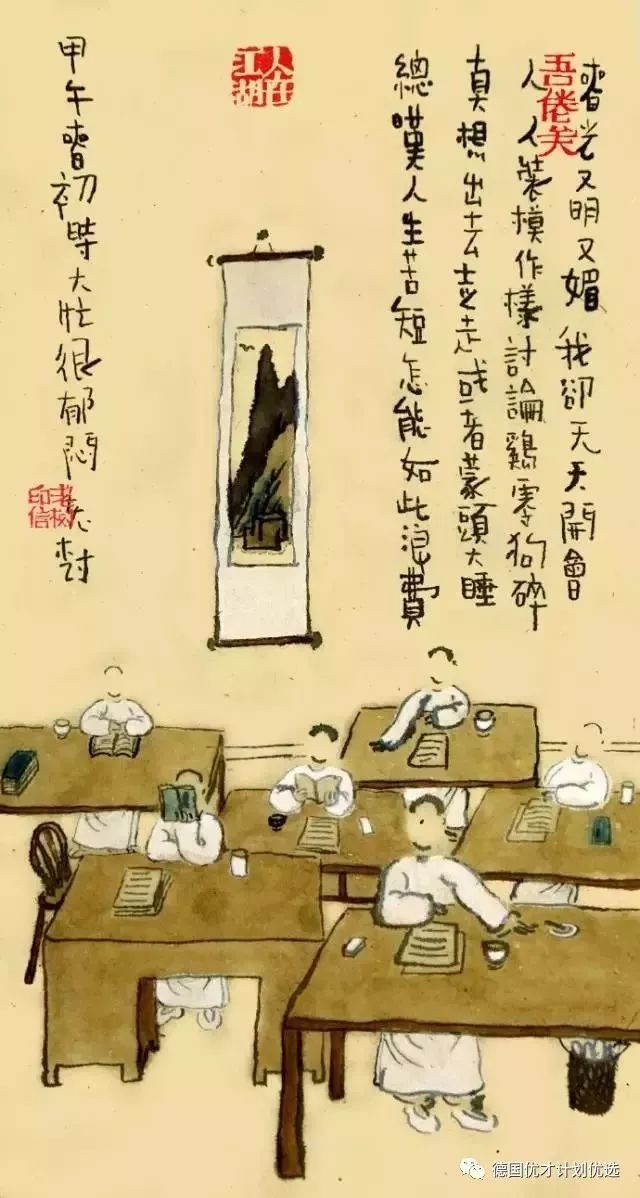 吾倦矣
春光又明又媚我卻天天開會
人人裝模作樣討論鷄零狗碎
真想出去走走或者蒙頭大睡
總嘆人生苦短怎能如此浪費
人在江湖
甲午春初時大壯很郁悶老樹
老樹印信
德国优才计划优选